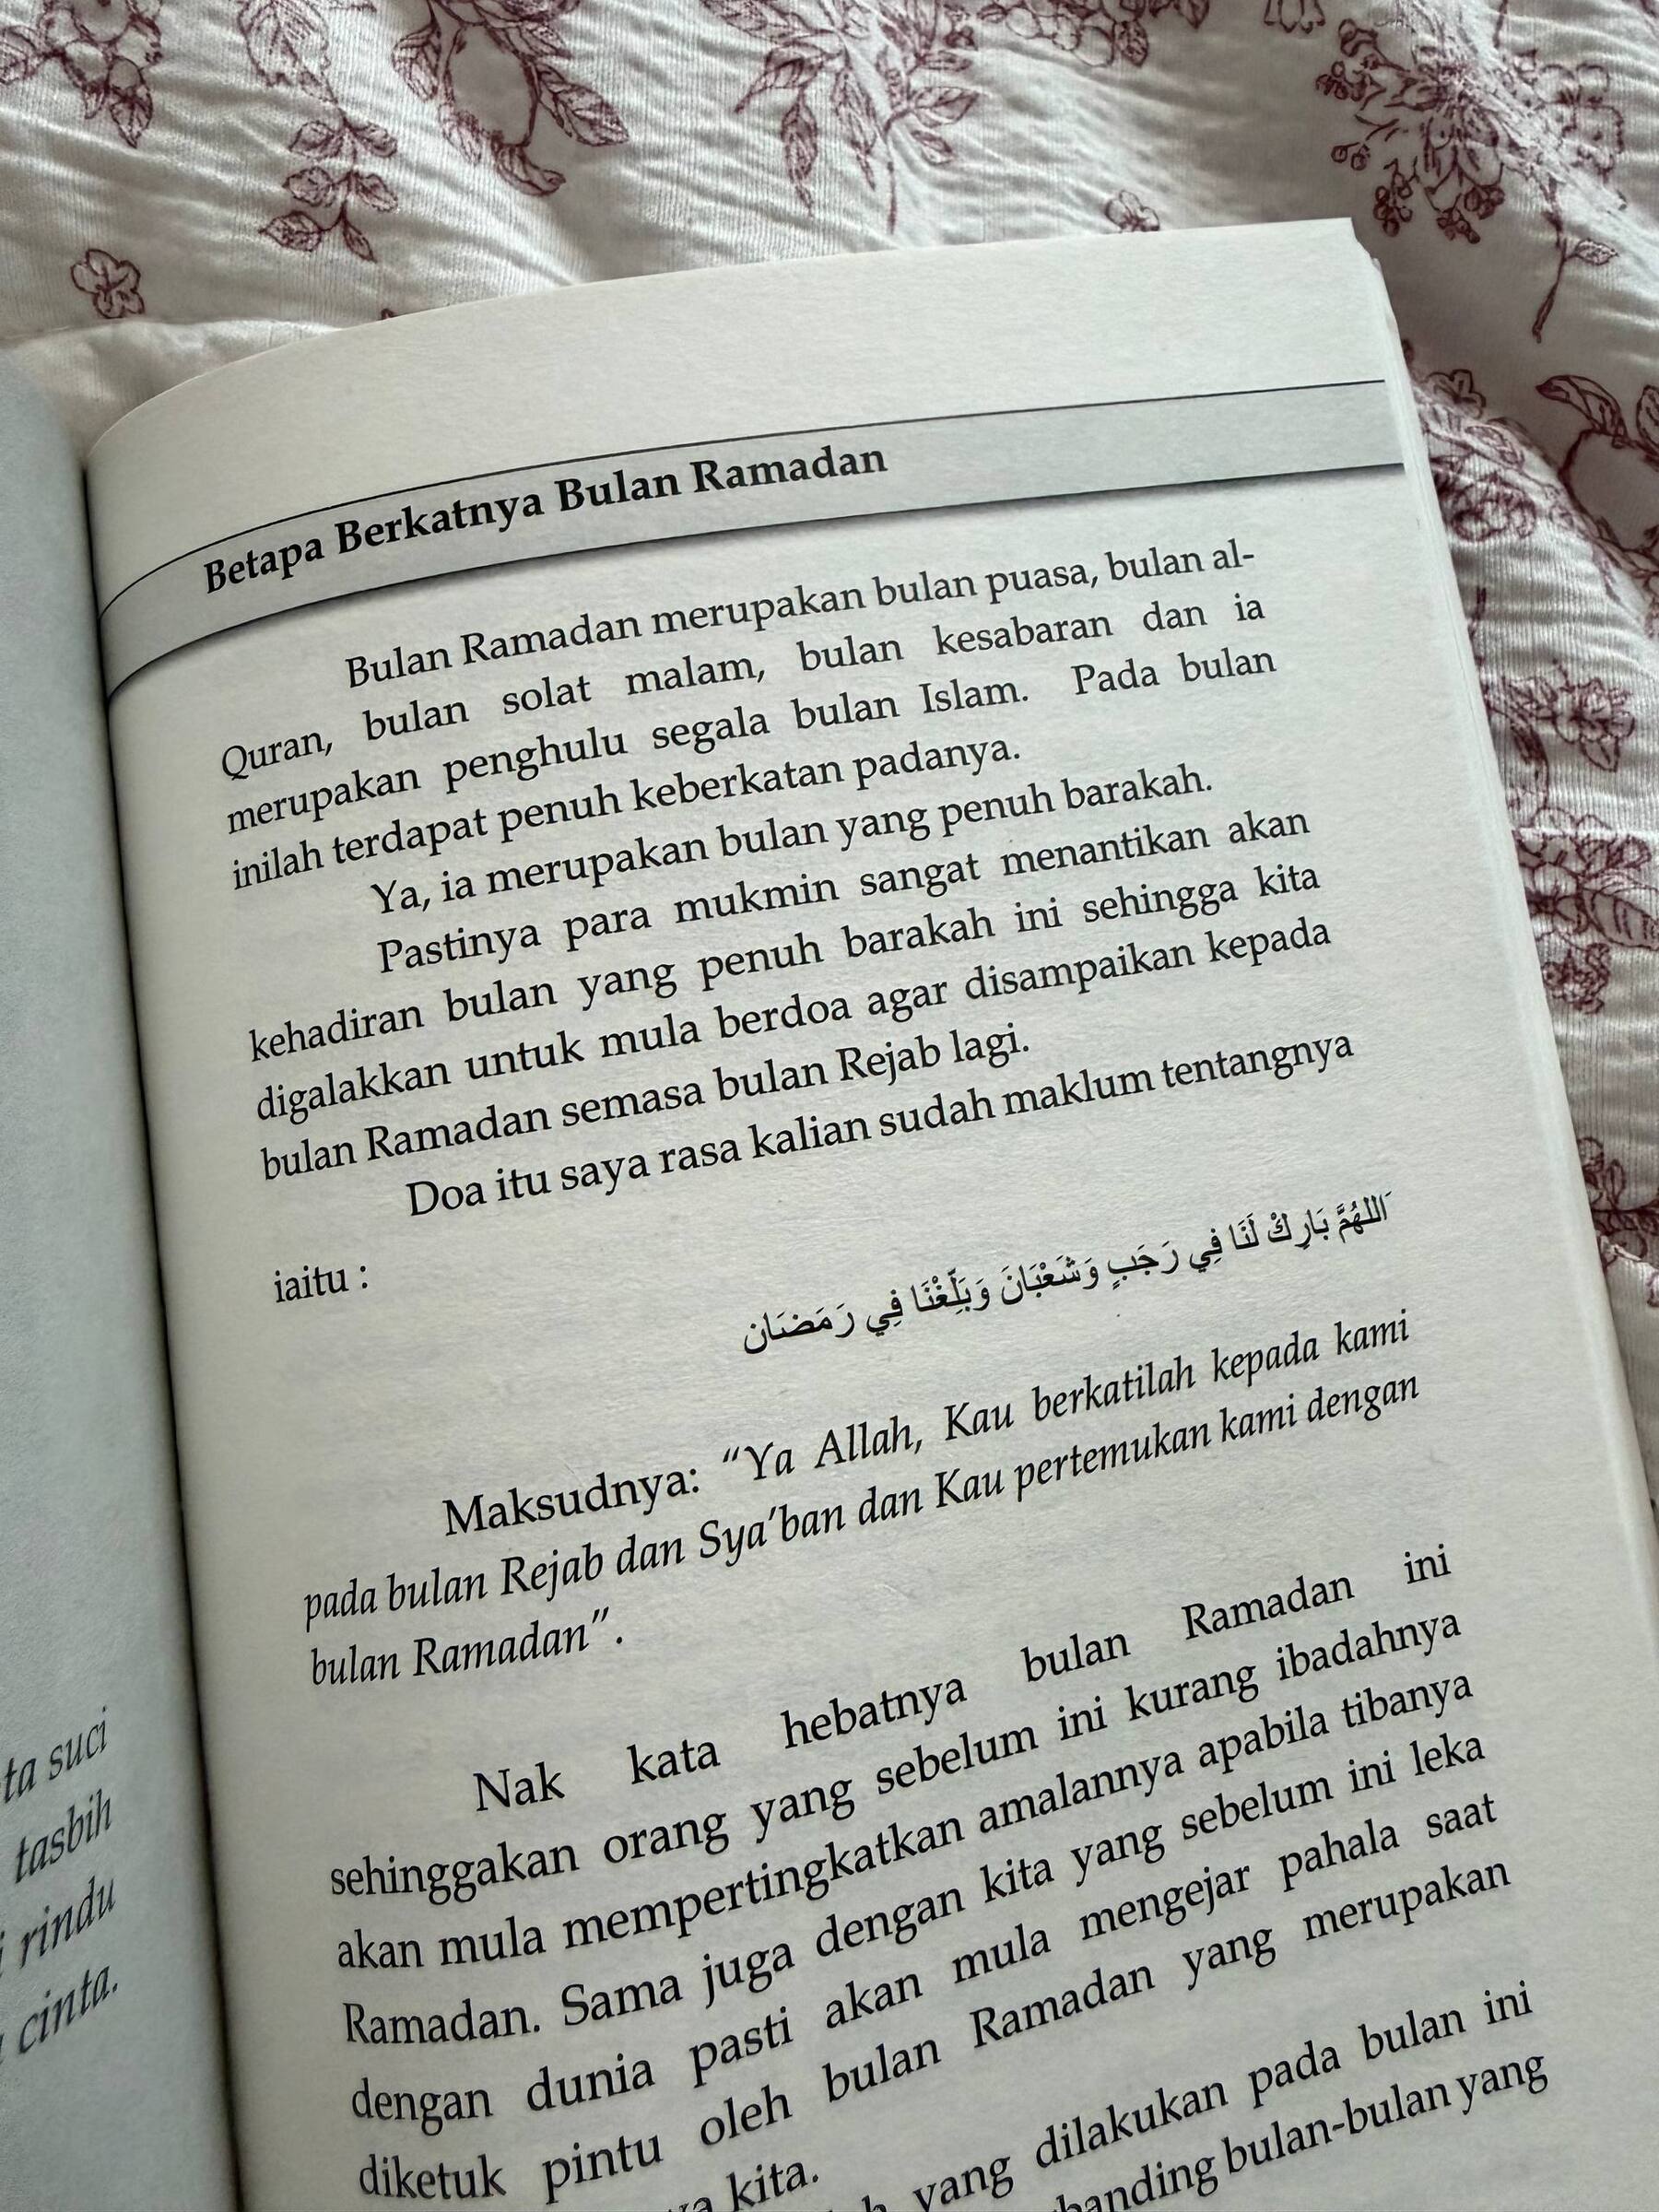 ta suci
tasbih
rindu
cinta.
Betapa Berkatnya Bulan Ramadan
Bulan Ramadan merupakan bulan puasa, bulan al-
Quran, bulan solat malam, bulan kesabaran dan ia
merupakan penghulu segala bulan Islam. Pada bulan
inilah terdapat penuh keberkatan padanya.
Ya, ia merupakan bulan yang penuh barakah.
Pastinya para mukmin sangat menantikan akan
kehadiran bulan yang penuh barakah ini sehingga kita
digalakkan untuk mula berdoa agar disampaikan kepada
bulan Ramadan semasa bulan Rejab lagi.
Doa itu saya rasa kalian sudah maklum tentangnya
iaitu :
اَللهُمَّ بَارِكْ لَنَا فِي رَجَبٍ وَشَعْبَانَ وَبَلِّغْنَا فِي رَمَضَان
Maksudnya: “Ya Allah, Kau berkatilah kepada kami
pada bulan Rejab dan Sya’ban dan Kau pertemukan kami dengan
bulan Ramadan”.
Nak kata hebatnya bulan Ramadan ini
sehinggakan orang yang sebelum ini kurang ibadahnya
akan mula mempertingkatkan amalannya apabila tibanya
Ramadan. Sama juga dengan kita yang sebelum ini leka
dengan dunia pasti akan mula mengejar pahala saat
diketuk pintu oleh bulan Ramadan yang merupakan
kita.
yang dilakukan pada bulan ini
banding bulan-bulan yang